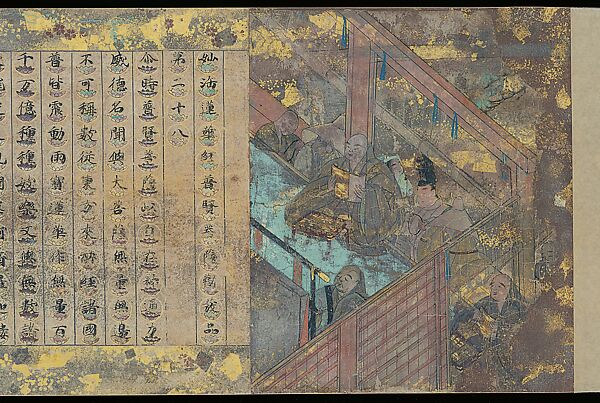 妙法蓮華經普賢菩薩勸發品
第二十八
尒時普賢菩薩以自在神通力
威德名聞與大菩薩無量無邊
不可稱數從東方來所經諸國
普皆震動雨寶蓮華作無量百
千万億種種妓樂又與無數諸